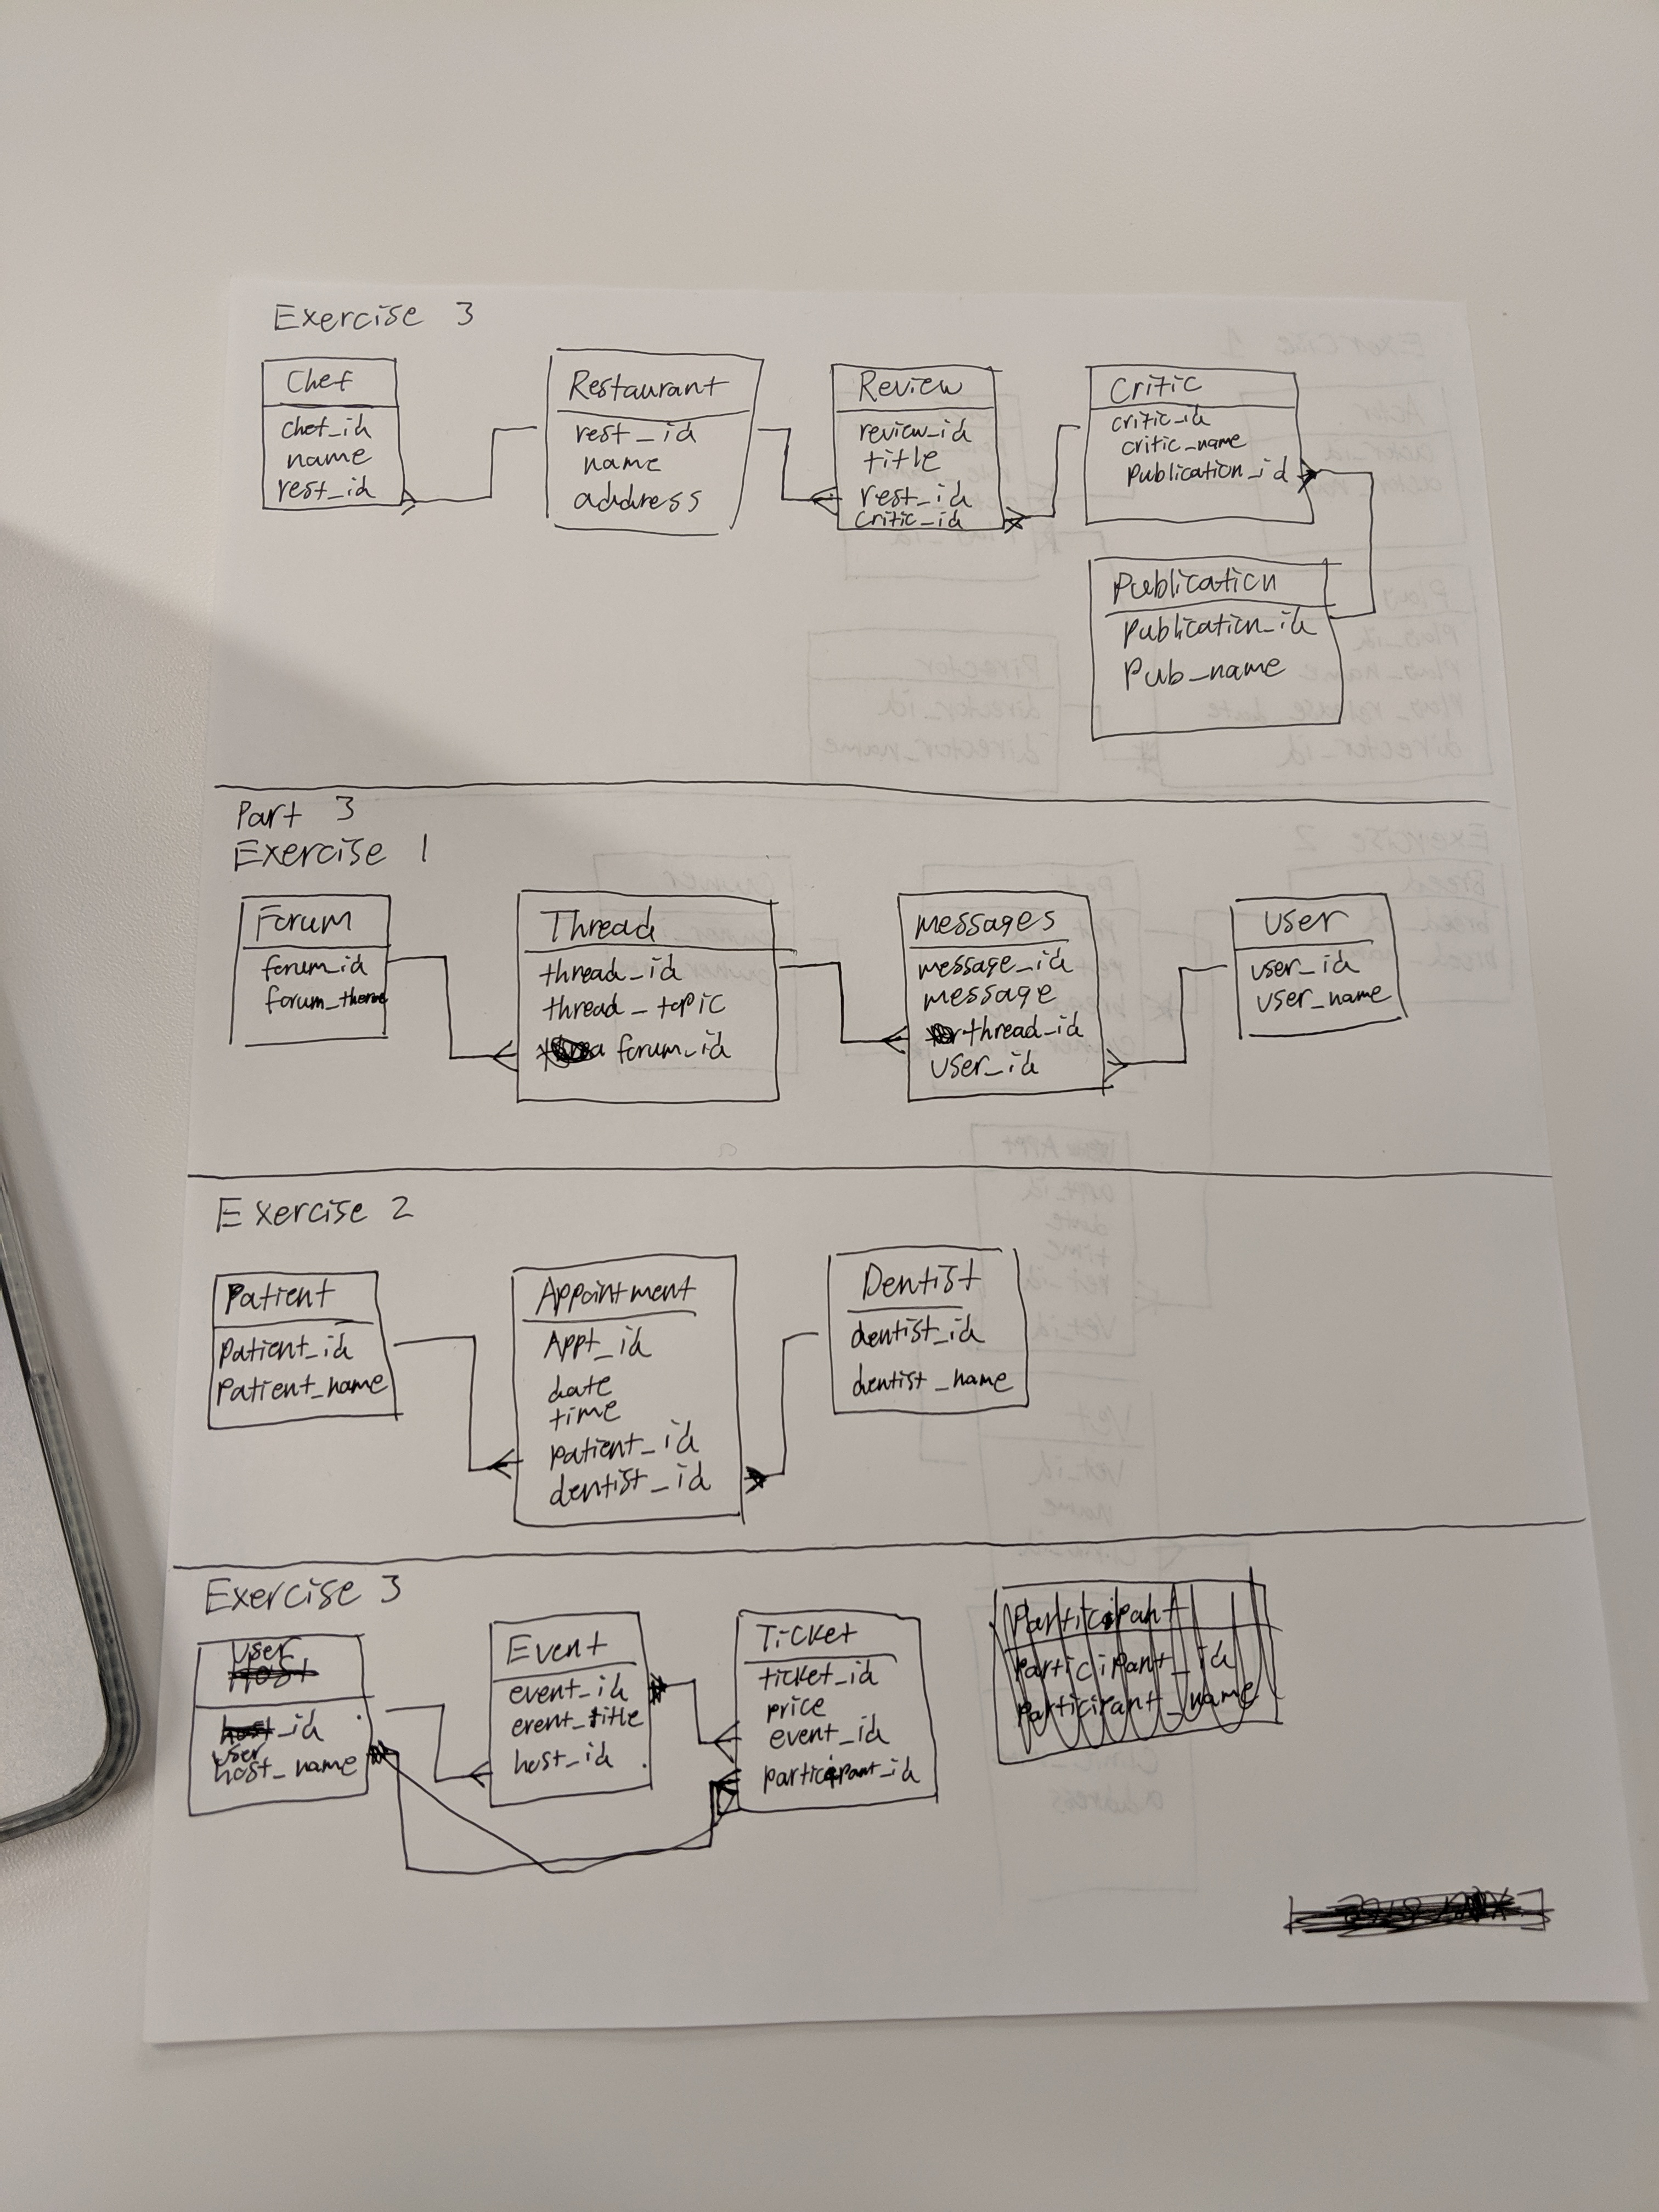 Exercise 3
Chef
chef_id
name
rest_id
Restaurant
rest_id
name
address
Review
review_id
title
rest_id
critic_id
Critic
critic_id
critic_name
publication_id
Publication
publication_id
Pub_name
Part 3
Exercise 1
Forum
forum_id
forum_theme
Thread
thread_id
thread_topic
forum_id
messages
message_id
message
thread_id
user_id
User
user_id
user_name
Exercise 2
Patient
patient_id
patient_name
Appointment
Appt_id
date
time
patient_id
dentist_id
Dentist
dentist_id
dentist_name
Exercise 3
User
Host
host_id
user
host_name
Event
event_id
event_title
host_id
Ticket
ticket_id
price
event_id
participant_id
Participant
participant_id
participant_name